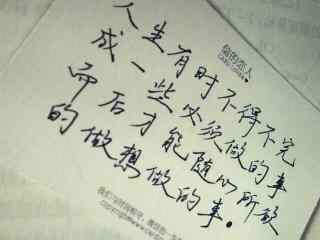 人生有时不得不完
成一些必须做的事
而后才能随心所欲
的做想做的事.